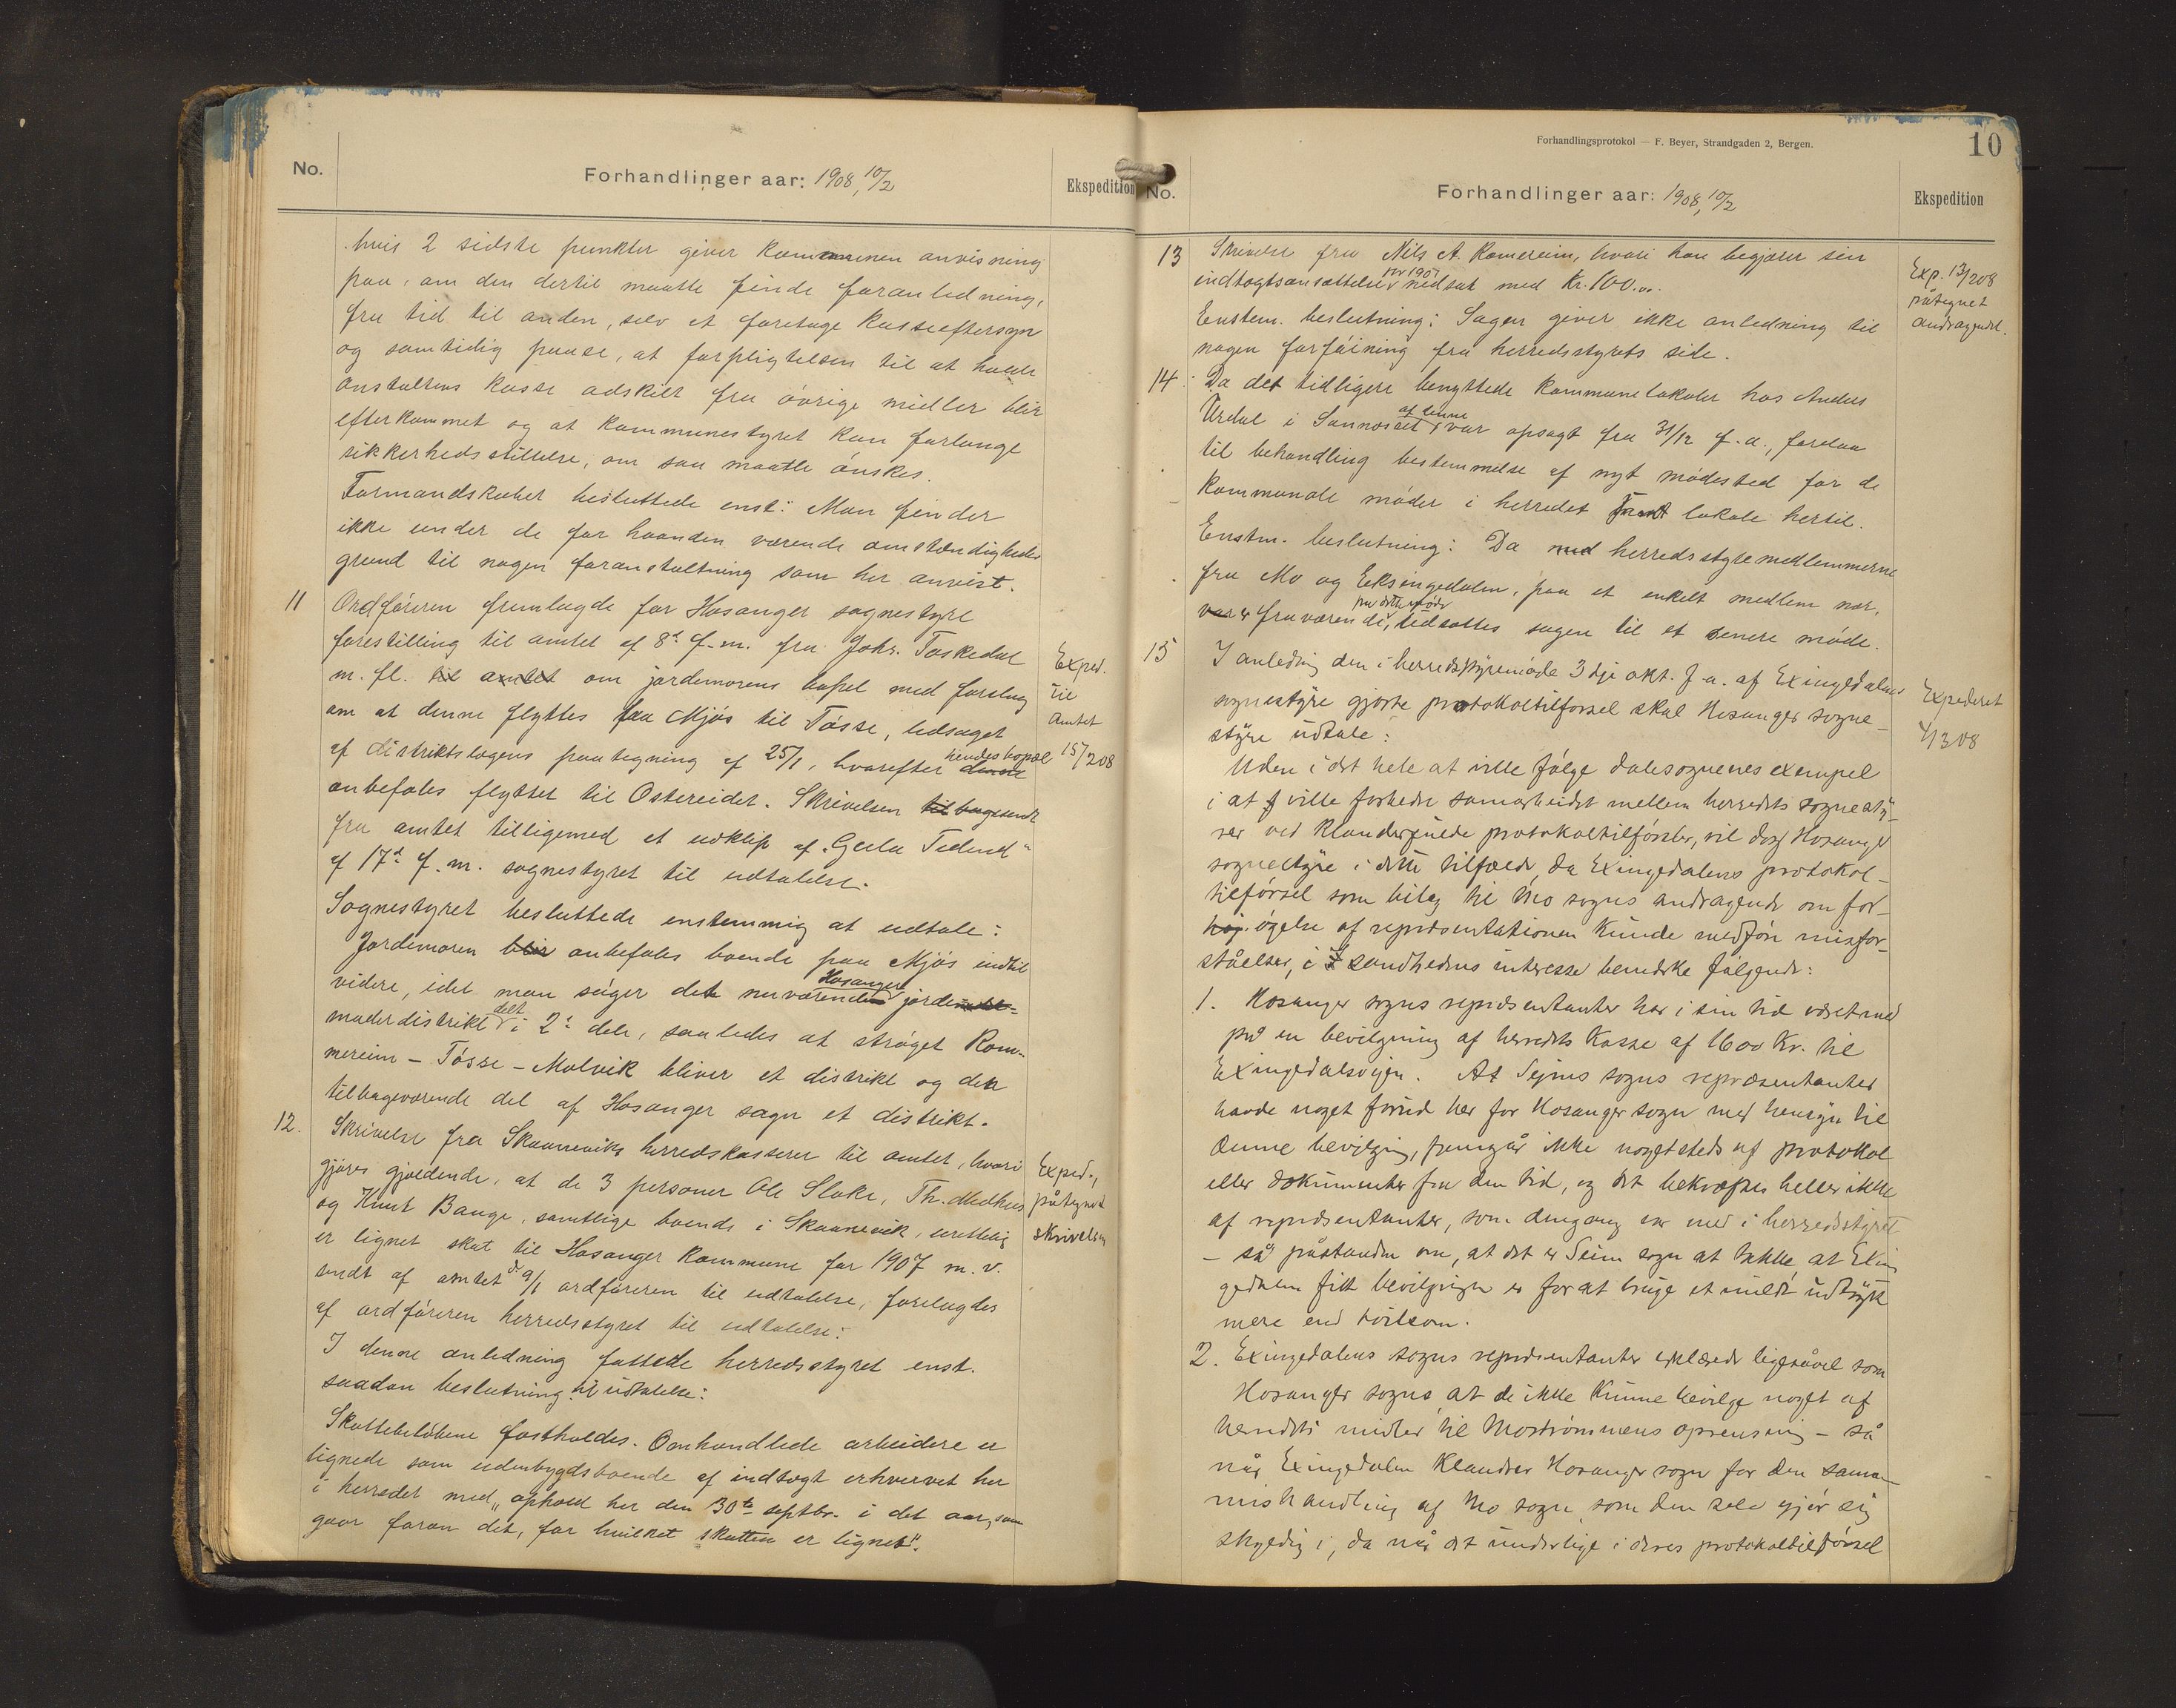 No.
Forhandlinger aar: 1908, 10/2
Ekspedition
hvis 2 sidste punkter giver kommunen anvisning
paa, om den dertil maatte finde foranledning,
fra tid til anden, selv et foretage kasseeftersyn
og samtidig paase, at forpligtelsen til at holde
anstaltens kasse adskilt fra øvrige midler blir
efterkommet og at kommunestyret kan forlange
sikkerhedsstillelse, om saa maatte ønskes.
Formandskabet besluttede enst: Man finder
ikke under de for haanden værende omstændigheder
grund til nogen foranstaltning som her anvist.
11 Ordføreren fremlagde for Hosanger sognestyre
forestilling til amtet af 8de f.m. fra Johs. Toskedal
m. fl. til amtet om jordemorens bopel med forslag
om at denne flyttes fra Mjøs til Tøsse, ledsaget
af distriktslægens paategning af 25/1, hvorefter denne hendes bopæl
anbefales flyttet til Ostereidet. Skrivelsen tilbagesendt
fra amtet tilligemed et udklip af "Gula Tidend"
af 17de f.m. sognestyret til udtalelse.
Exped.
til
Amtet
15/2 08
Sognestyret besluttede enstemmig at udtale:
Jordemoren blir anbefales boende paa Mjøs indtil
videre, idet man søger det nuværende Hosanger jorde-
moderdistrikt delt i 2de dele, saaledes at strøget Rom-
mereim - Tøsse - Molvik bliver et distrikt og den
tilbageværende del af Hosanger sogn et distrikt.
12. Skrivelse fra Skaaneviks herredskasserer til amtet, hvori
gjøres gjældende, at de 3 personer Ole Sloke, Th. Medhus
og Knut Bauge, samtlige boende i Skaanevik, urettelig
er lignet skat til Hosanger kommune for 1907 m. v.
sendt af amtet d. 9/1 ordføreren til udtalelse, forelagdes
af ordføreren herredsstyret til udtalelse:
Exped.,
påtegnet
skrivelsen
I denne anledning fattede herredsstyret enst.
saadan beslutning til udtalelse:
Skattebeløbene fastholdes. Omhandlede arbeidere er
lignede som udenbygdsboende af indtægt erhvervet her
i herredet med "ophold her den 30te septbr. i det aar, som
gaar foran det, for hvilket skatten er lignet".
Forhandlingsprotokol — F. Beyer, Strandgaden 2, Bergen.
10
No.
Forhandlinger aar: 1908, 10/2
Ekspedition
13 Skrivelse fra Nils A. Romereim, hvori han begjærer sin
indtægtsansættelse pr 1907 nedsat med Kr. 100.00.
Enstem. beslutning: Sagen giver ikke anledning til
nogen forføining fra herredsstyrets side.
Exp. 13/2 08
påtegnet
andragendet.
14 Da det tidligere benyttede kommunelokaler hos Anders
Urdal i Sannoset af denne var opsagt fra 31/12 f.a., forelaa
til behandling bestemmelse af nyt mødested for de
kommunale møder i herredet samt lokale hertil.
Enstm. beslutning: Da med herredsstyremedlemmerne
fra Mo og Eksingedalen, paa et enkelt medlem nær,
var er fraværende fra dette møde, udsattes sagen til et senere møde.
15 I anledning den i herredsstyremøde 3dje okt. f.a. af Exingedalens
sognestyre gjorte protokoltilførsel skal Hosanger sogne-
styre udtale:
Expederet
4/3 08
Uden i det hele at ville følge dalesognenes exempel
i at f ville forbedre samarbeidet mellem herredets sognesty-
rer ved klanderfulde protokoltilførsler, vil dog Hosanger
sognestyre i dette tilfælde, da Exingedalens protokol-
tilførsel som bilag til Mo sogns andragende om for-
høj øgelse af repræsentationen kunde medføre misfor-
ståelser, i sandhedens interesse bemerke følgende:
1. Hosanger sogns repræsentanter har i sin tid været med
på en bevilgning af herredets kasse af 1600 Kr. til
Exingedalsveien. At Sejms sogns repræsentanter
havde noget forud her for Hosanger sogn med hensyn til
denne bevilgning, fremgår ikke nogetsteds af protokol
eller dokumenter fra den tid, og det bekræftes heller ikke
af repræsentanter, som dengang var med i herredsstyret
- så påstanden om, at det er Seim sogn at takke at Exin-
gedalen fikk bevilgningen er for at bruge et mildt udtryk
mere end tvilsom.
2. Exingedalens sogns repræsentanter erklærede ligesåvel som
Hosanger sogns at de ikke kunne bevilge noget af
herredets midler til Mostrømmens oprensning - så
når Exingedalen klandrer Hosanger sogn for den samme
mishandling af Mo sogn, som den selv gjør sig
skyldig i, da når det underlige i deres protokoltilførsel